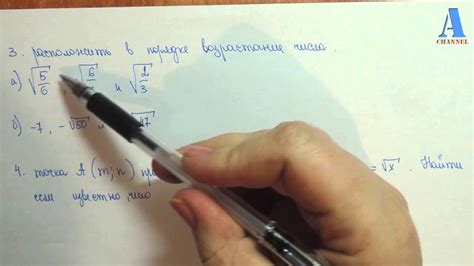 3. расположить в порядке возрастания числа.
а) √5/6 √6 и √2/3
б) -7, -√50 и √47
4. точка А (m; n) = √x. Найти
если известно, что
A
CHANNEL